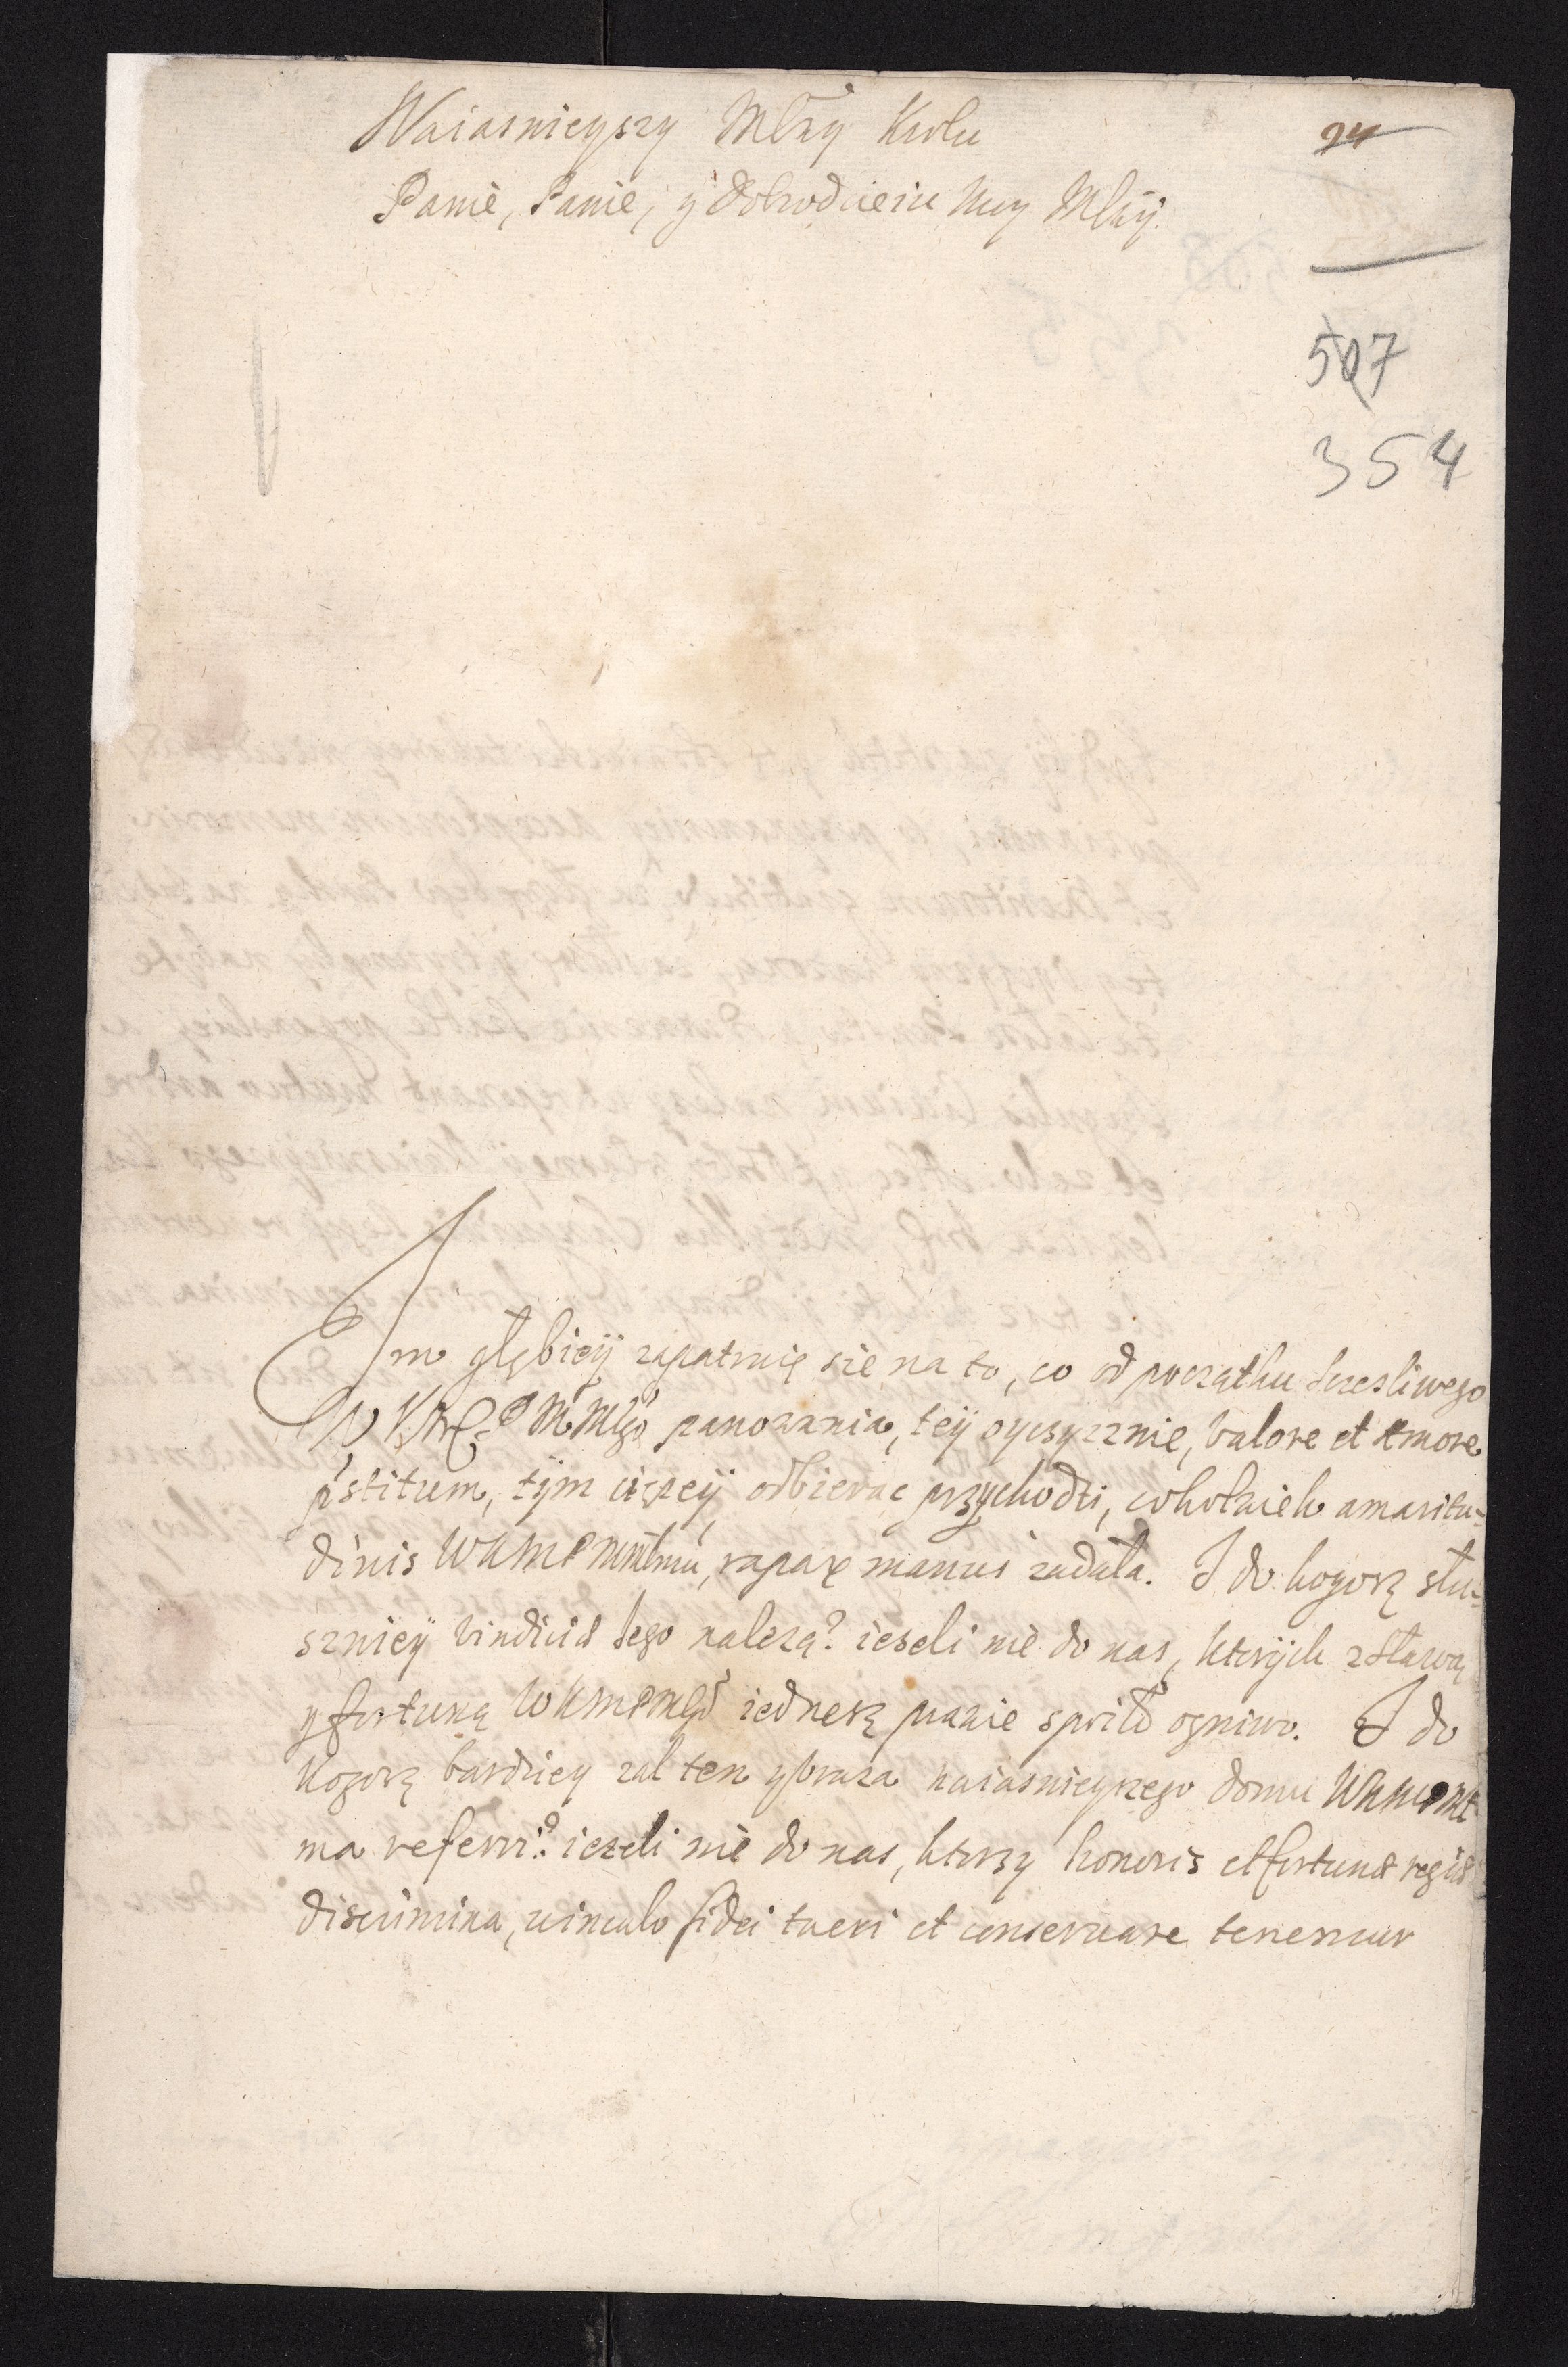 Naiasnieyszy Młwy Krolu
94
Panie, Panie, y Dobrodzieiu Moy Młwy
507
354
Im głębieÿ zapatruię sie na to, co od początku szczesliwego
WKMći P M Młgo panowania, teÿ oyczyznie, valore et amore
p̃stitum, tÿm cięzeÿ odbierac przychodzi, cokolwiek amaritu-
dinis WKM P rapax manus zadała. I do kogosz słu-
sznieÿ vindicta tego nalezą? iezeli nie do nas, ktorÿch z sławą
y fortuną WKM P M iednesz prawie spoiło ogniwo. I do
kogosz bardziey zal ten y uraza naiasnieyszego domu WKM P M
ma referri? iezeli nie do nas, ktorzy honoris et fortunæ regiæ
discrimina, vinculo fidei tueri et conseruare tenemur